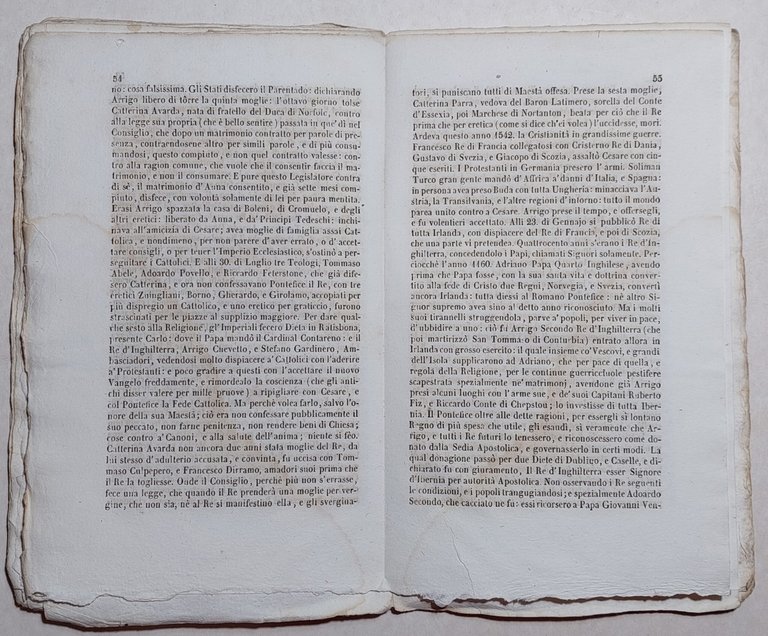 54
no: cosa falsissima. Gli Stati disfecero il Parentado: dichiarando
Arrigo libero di tôrre la quinta moglie: l'ottavo giorno tolse
Catterina Avarda, nata di fratello del Duca di Norfolc, contro
alla legge sua propria (che è bello sentire) passata in que' dì nel
Consiglio, che dopo un matrimonio contratto per parole di pre-
senza, contraendosene altro per simili parole, e di più consu-
mandosi, questo compiuto, e non quel contratto valesse: con-
tro alla ragion comune, che vuole che il consentir faccia il ma-
trimonio, e non il consumare. E pure questo Legislatore contra
di sè, il matrimonio d'Anna consentito, e già sette mesi com-
piuto, disfece, con volontà solamente di lei per paura mentita.
Erasi Arrigo spazzata la casa di Boleni, di Cromuelo, e degli
altri eretici: liberato da Anna, e da' Principi Tedeschi: inchi-
nava all'amicizia di Cesare; avea moglie di famiglia assai Cat-
tolica, e nondimeno, per non parere d'aver errato, o d'accet-
tare consigli, o per tener l'Imperio Ecclesiastico, s'ostinò a per-
seguitare i Cattolici. E alli 30. di Luglio tre Teologi, Tommaso
Abele, Adoardo Povello, e Riccardo Feterstone, che già dife-
sero Catterina, e ora non confessavano Pontefice il Re, con tre
eretici Zuingliani, Borno, Gherardo, e Girolamo, accopiati per
più dispregio un Cattolico, e uno eretico per graticcio, furono
strascinati per le piazze al supplizio maggiore. Per dare qual-
che sesto alla Religione, gl'Imperiali fecero Dieta in Ratisbona,
presente Carlo: dove il Papa mandò il Cardinal Contareno: e il
Re d'Inghilterra, Arrigo Chevetto, e Stefano Gardinero, Am-
basciadori, vedendosi molto dispiacere a' Cattolici con l'aderire
a'Protestanti: e poco gradire a questi con l'accettare il nuovo
Vangelo freddamente, e rimordealo la coscienza (che gli anti-
chi disser valere per mille pruove) a ripigliare con Cesare, e
col Pontefice la Fede Cattolica. Ma perchè volea farlo, salvo l'o-
nore della sua Maestà; ciò era non confessare pubblicamente il
suo peccato, non farne penitenza, non rendere beni di Chiesa;
cose contro a'Canoni, e alla salute dell'anima; niente si fèo.
Catterina Avarda non ancora due anni stata moglie del Re, da
lui stesso d'adulterio accusata, e convinta, fu uccisa con Tom-
maso Culpepero, e Francesco Dirramo, amadori suoi prima che
il Re la togliesse. Onde il Consiglio, perchè più non s'errasse,
fece una legge, che quando il Re prenderà una moglie per ver-
gine, che non sia, nè al Re si manifestino ella, e gli svergina-
55
tori, si puniscano tutti di Maestà offesa. Prese la sesta moglie,
Catterina Parra, vedova del Baron Latimero, sorella del Conte
d'Essexia, poi Marchese di Nortanton, beata per ciò che il Re
prima che per eretica (come si dice ch'ei volea) l'uccidesse, morì.
Ardeva questo anno 1542. la Cristianità in grandissime guerre.
Francesco Re di Francia collegatosi con Cristerno Re di Dania,
Gustavo di Svezia, e Giacopo di Scozia, assaltò Cesare con cin-
que eserciti. I Protestanti in Germania presero l'armi. Soliman
Turco gran gente mandò d'Affrica a'danni d'Italia, e Spagna:
in persona avea preso Buda con tutta Ungheria: minacciava l'Au-
stria, la Transilvania, e l'altre regioni d'intorno: tutto il mondo
parea unito contro a Cesare. Arrigo prese il tempo, e offersegli,
e fu volentieri accettato. Alli 23. di Gennajo si pubblicò Re di
tutta Irlanda, con dispiacer del Re di Francia, e poi di Scozia,
che una parte vi pretendea. Quattrocento anni s'erano i Re d'In-
ghilterra, concedendolo i Papi, chiamati Signori solamente. Per-
ciocchè l'anno 1160. Adriano Papa Quarto Inghilese, avendo
prima che Papa fosse, con la sua santa vita e dottrina convert-
ito alla fede di Cristo due Regni, Norvegia, e Svezia, convertì
ancora Irlanda: tutta diessi al Romano Pontefice: nè altro Si-
gnor supremo avea sino al detto anno riconosciuto. Ma i molti
suoi tirannelli struggendola, parve a'popoli, per viver in pace,
d'ubbidire a uno: ciò fu Arrigo Secondo Re d'Inghilterra (che
poi martirizzò San Tommaso di Conturbia) entrato allora in
Irlanda con grosso esercito: il quale insieme co'Vescovi, e grandi
dell'Isola supplicarono ad Adriano, che per pace di quella, e
regola della Religione, per le continue guerricciuole pestifere
scapestrata spezialmente ne'matrimonj, avendone già Arrigo
presi alcuni luoghi con l'arme sue, e de' suoi Capitani Ruberto
Fiz, e Riccardo Conte di Chepstou; lo investisse di tutta Iber-
nia. Il Pontefice oltre alle dette ragioni, per essergli sì lontano
Regno di più spesa che utile, gli esaudì, sì veramente che Ar-
rigo, e tutti i Re futuri lo tenessero, e riconoscessero come do-
nato dalla Sedia Apostolica, e governasserlo in certi modi. La
qual donagione passò per due Diete di Dublino, e Caselle, e di-
chiarato fu con giuramento, Il Re d'Inghilterra esser Signore
d'Ibernia per autorità Apostolica. Non osservando i Re seguenti
le condizioni, e i popoli trangugiandosi; e spezialmente Adoardo
Secondo, che cacciato ne fu: essi ricorsero a Papa Giovanni Ven-